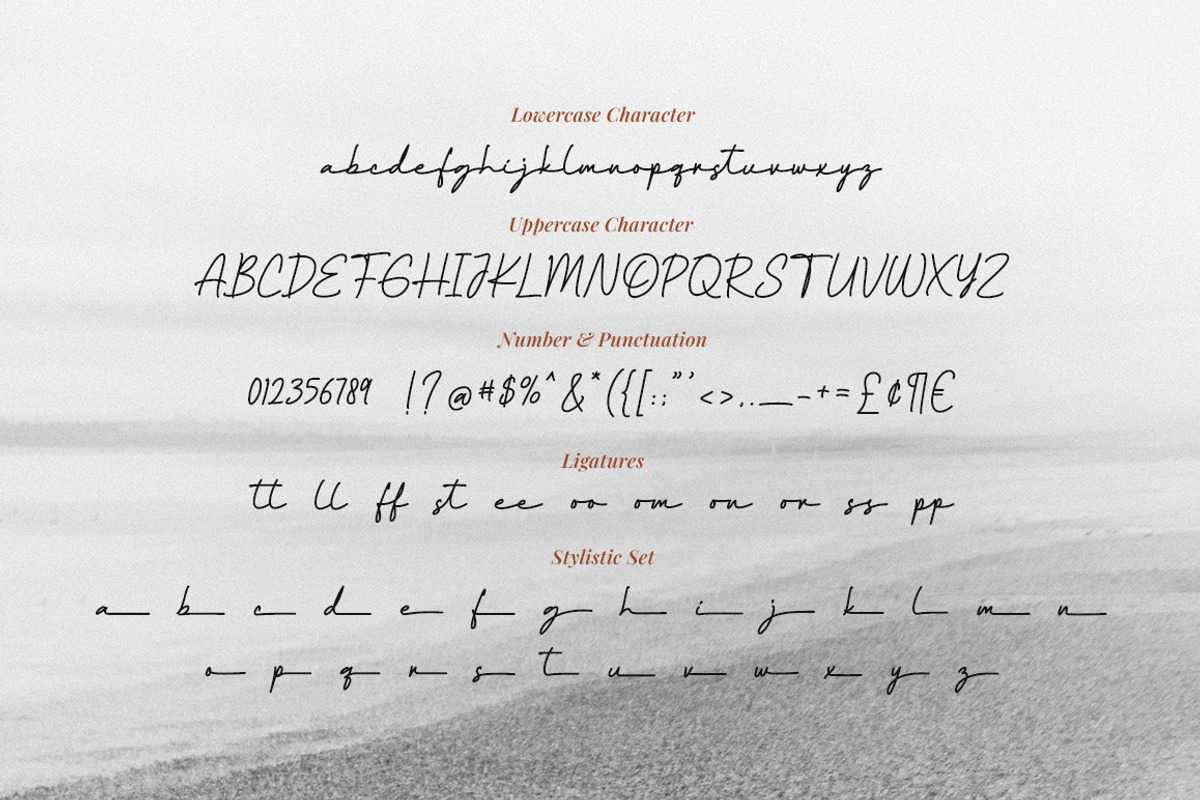 Lowercase Character
abcdefghijklmnopqrstuvwxyz
Uppercase Character
ABCDEFGHIJKLMNOPQRSTUVWXYZ
Number & Punctuation
012356789 !?@#$%^&*({[:;"'<>,.__-+=£¢¶€
Ligatures
tt ll ff st ee oo om on or ss pp
Stylistic Set
a b c d e f g h i j k l m n
o p q r s t u v w x y z